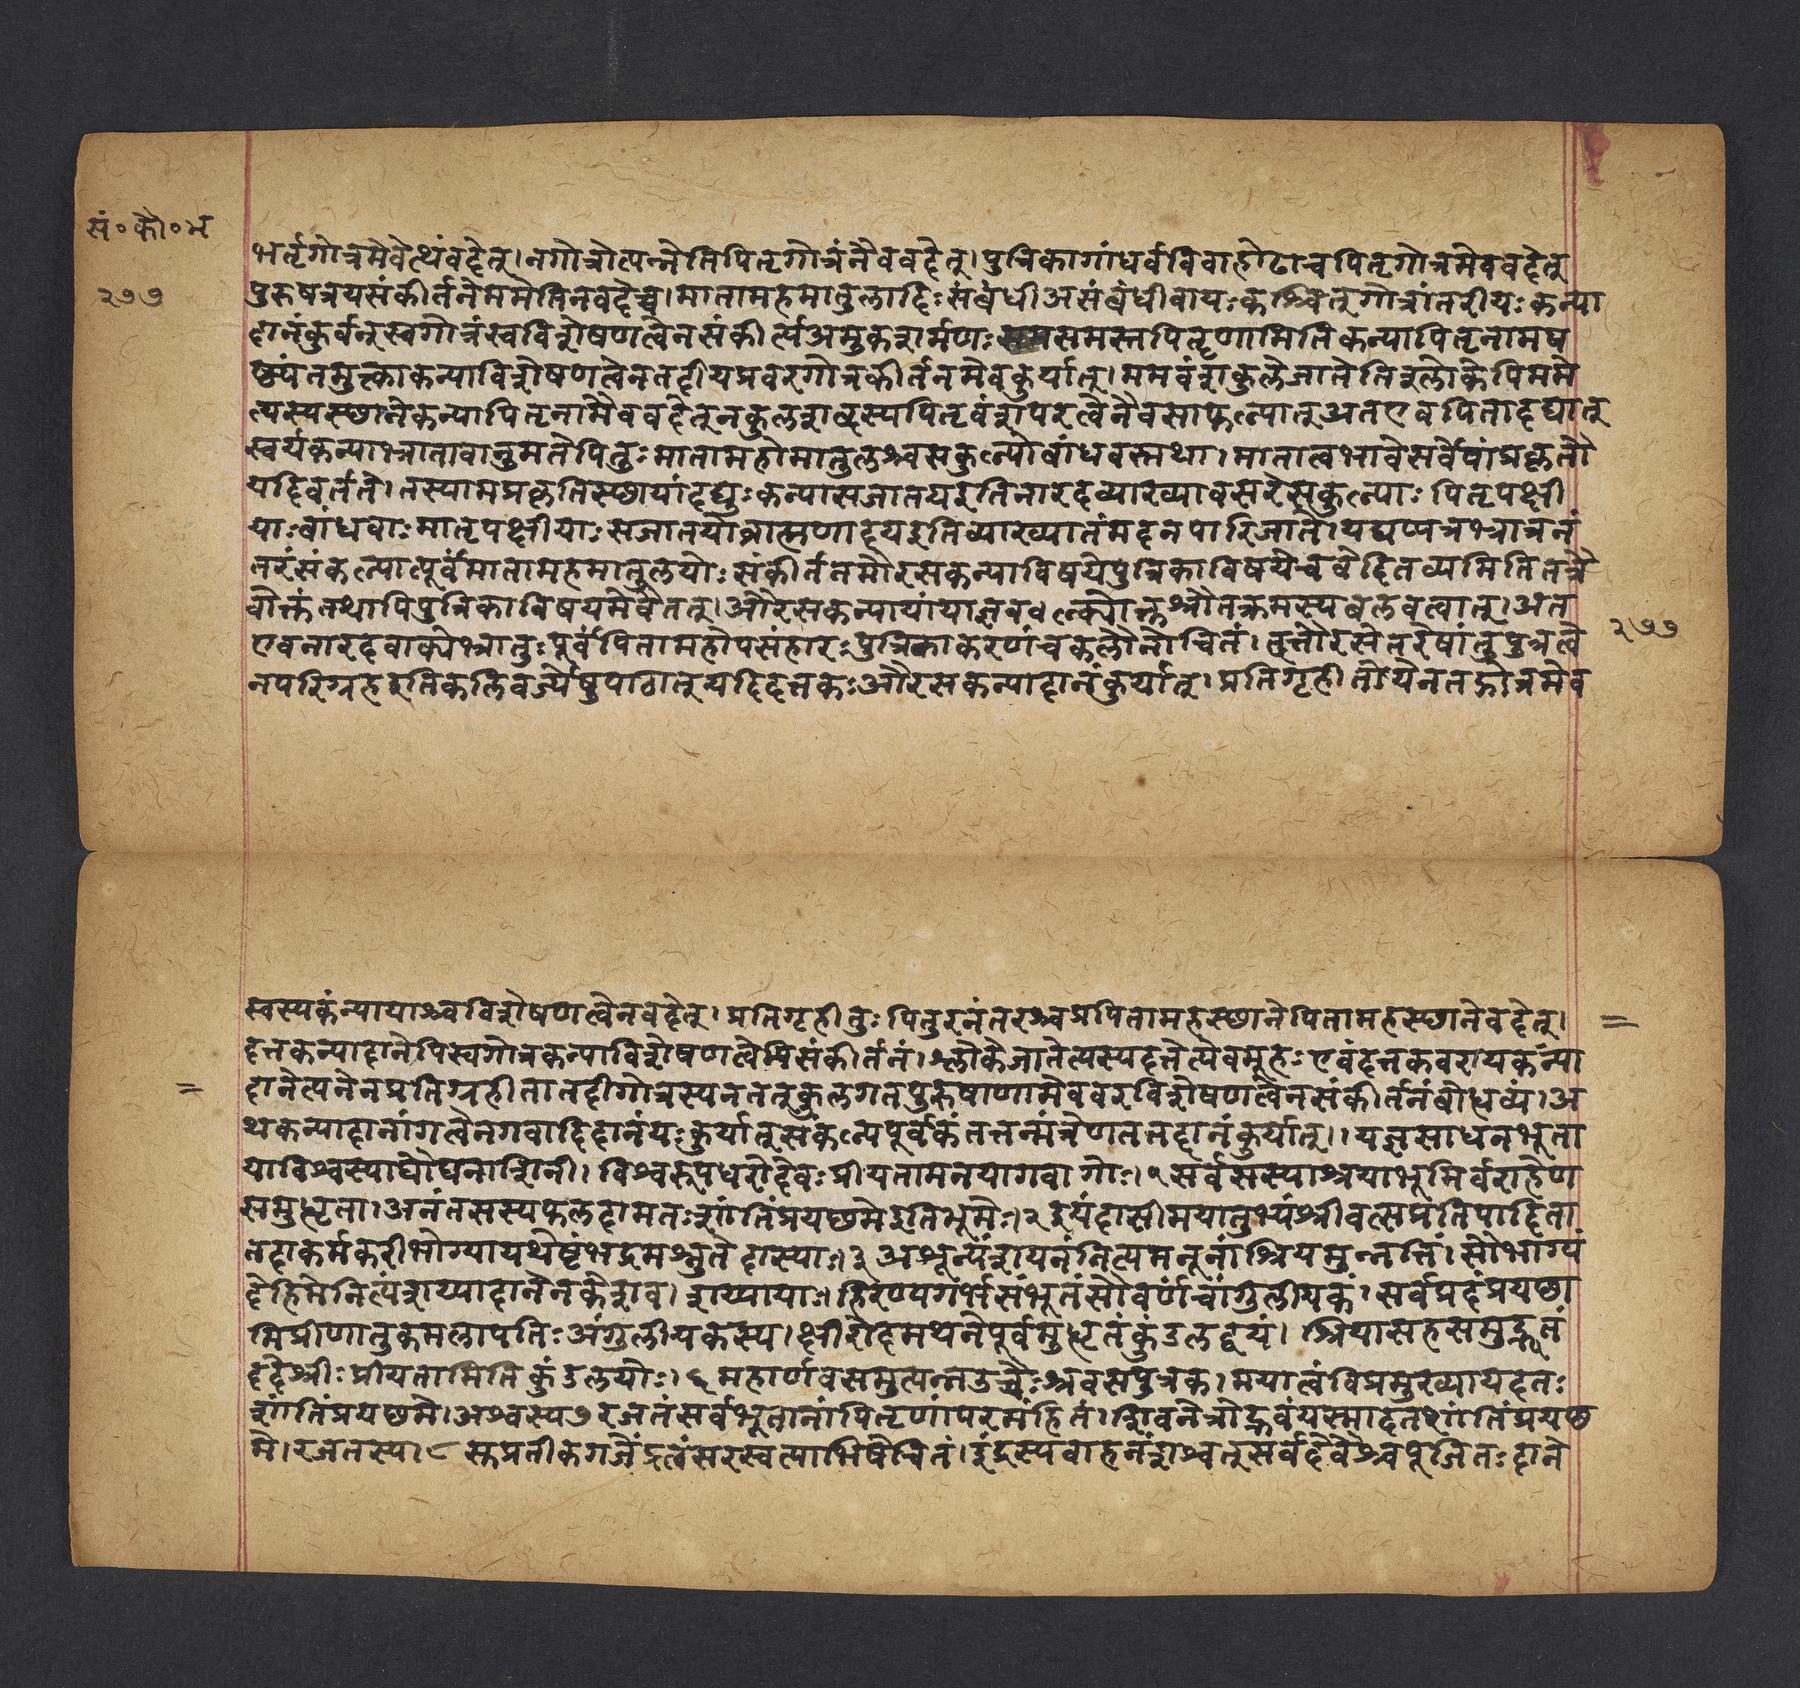 सं॰कौ॰म
२७७
भर्तृगोत्रमेवेत्थंवदेत्।नगोत्रोत्पन्नेतिपितृगोत्रंनैववदेत्।पुत्रिकागांधर्वविवाहोढाचपितृगोत्रमेववदेत्
पुरुषत्रयसंकीर्तनेममेतिनवदेच्च।मातामहमातुलादिःसंबंधीअसंबंधीवायःकश्चित्गोत्रांतरीयःकन्या
दानंकुर्वन्स्वगोत्रंस्वविशेषणत्वेनसंकीर्त्यअमुकशर्मणःसमस्तपितॄणामितिकन्यापितृनामष
ष्ठ्यंतमुक्त्काकन्याविशेषणत्वेनतदीयप्रवरगोत्रकीर्तनमेवकुर्यात्।ममवंशकुलेजातेतिश्लोकेपिममे
त्यस्यस्छानेकन्यापितृनामैववदेत्नकुलशब्दस्यपितृवंशपरत्वेनैवसाफल्यात्अतएवपितादद्यात्
स्वयंकन्याभ्रातावानुमतेपितुःमातामहोमातुलश्चसकुल्योबांधवस्तथा।मातात्वभावेसर्वेषांप्रकृतौ
यदिवर्तते।तस्यामप्रकृतिस्छायांदद्युःकन्यासजातयइतिनारदव्याख्यावसरेसकुल्याःपितृपक्षी
याःबांधवाःमातृपक्षीयाःसजातयोब्राह्मणादयइतिव्याख्यातंमदनपारिजाते।यद्यप्यत्रभ्रात्रनं
तरंसंकल्पात्पूर्वंमातामहमातुलयोःसंकीर्तनमौरसकन्याविषयेपुत्रिकाविषयेचवेदितव्यमितितत्रै
वोक्तंतथापिपुत्रिकाविषयमेवैतत्।औरसकन्यायांयाज्ञवल्क्योक्तश्रौतक्रमस्यबलवत्वात्।अत
एवनारदवाक्येभ्रातुःपूर्वंपितामहोपसंहारःपुत्रिकाकरणंचकलौनोचितं।दत्तौरसेतरेषांतुपुत्रत्वे
नपरिग्रहइतिकलिवर्ज्येषुपाठात्यदिदत्तकःऔरसकन्यादानंकुर्यात्।प्रतिगृहीतोयेनतद्गोत्रमेव
२७७
स्वस्यकंन्यायाश्चविशेषणत्वेनवदेत्।प्रतिगृहीतुःपितुरनंतरश्चप्रपितामहस्छानेपितामहस्छानेवदेत्।
दत्तकन्यादानेपिस्वगोत्रकन्याविशेषणत्वेपिसंकीर्तनं।श्लोकेजातेत्यस्यदत्तेत्येवमूहःएवंदत्तकवरायकंन्या
दानेत्यनेनप्रतिग्रहीतातदीगोत्रस्यनतत्कुलगतपुरुषाणामेववरविशेषणत्वेनसंकीर्तनंबोध्यव्यं।अ
थकन्यादानांगत्वेनगवादिदानंयःकुर्यात्संकल्पपूर्वकंतत्तन्मंत्रेणतत्तद्दानंकुर्यात्।।यज्ञसाधनभूता
याविश्वस्याघौघनाशिनी।विश्वरूपधरोदेवःप्रीयतामनयागवा गोः।१सर्वसस्याश्रयाभूमिर्वराहेण
समुद्धृता।अनंतसस्यफलदामतःशांतिंप्रयछमेइतिभूमेः।२इयंदासीमयातुभ्यंश्रीवत्सप्रतिपादिता
तदाकर्मकरीभोग्यायथेष्टंभद्रमश्नुते दास्याः।३अशून्यंशयनंनित्यमनूनांश्रियमुन्नतिं।सौभाग्यं
देहिमेनित्यंशय्यादानेनकेशव।शय्यायाः।हिरण्यगर्भसंभूतंसौवर्णंचांगुलीयकं।सर्वप्रदंप्रयछा
मिप्रीणातुकमलापतिःअंगुलीयकस्य।क्षीरोदमथनेपूर्वमुद्धृतंकुंडलद्वयं।श्रियासहसमुद्भूतं
ददेश्रीःप्रीयतामितिकुंडलयोः।६महार्णवसमुत्पन्नउच्चैःश्रवसपुत्रक।मयात्वंविप्रमुख्यायदत्तः
शांतिंप्रयछमे।अश्वस्य७रजतंसर्वभूतानांपितृणांपरमंहितं।शिवनेत्रोद्भवंयस्मादतशांतिंप्रयछ
मे।रजतस्य।८सप्रतीकगजेंद्रत्वंसरस्वत्याभिषेचितं।इंद्रस्यवाहनंशश्वत्सर्वदेवैश्चपूजितःदाने